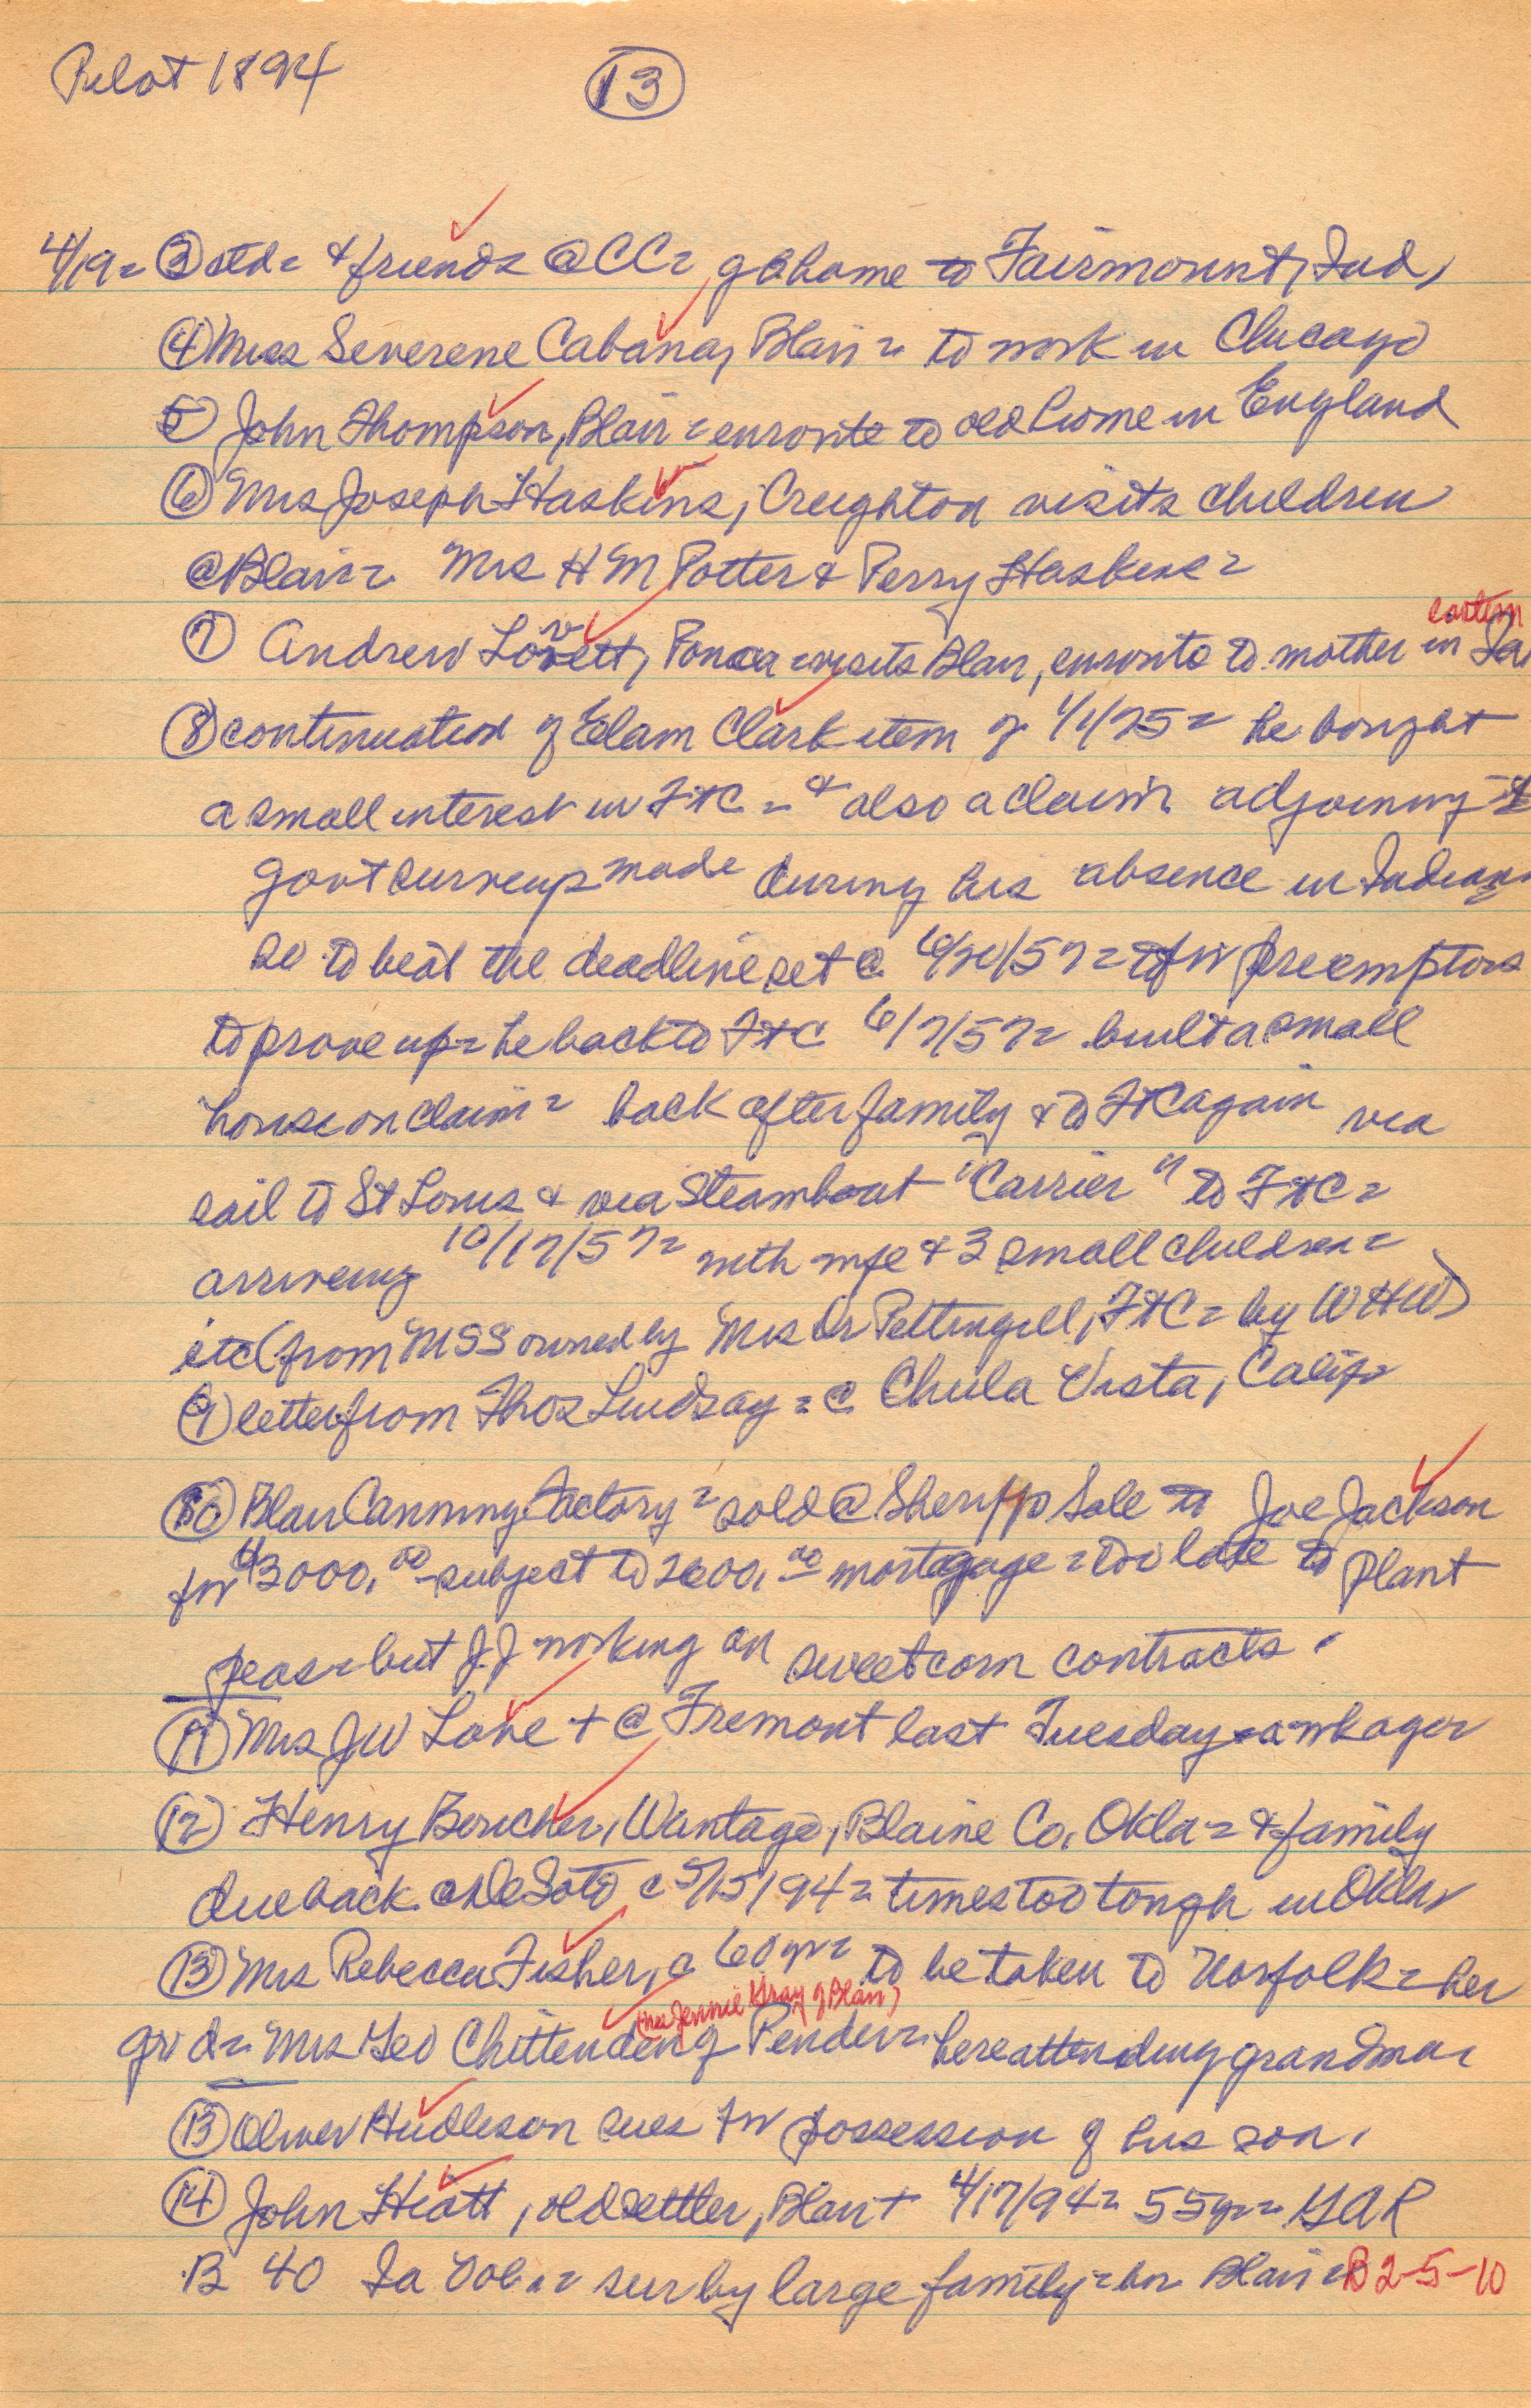 Pilot 1894 13
4/19= 3 std= & friends @ CC= go home to Fairmount, Ind,
4 Miss Severene Cabana, Blair= to work in Chicago
5 John Thompson, Blair= enroute to old home in England
6 Mrs Joseph Haskins, Creighton visits children
@ Blair= Mrs H M Potter & Perry Haskins=
7 Andrew Lovett, Ponca= visits Blair, enroute to mother in eastern Ia
8 continuation of Elam Clark item of 1/1/75= he bought
a small interest in FtC= & also a claim adjoining=
Govt survey made during his absence in Indiana
so to beat the deadline set @ for preemptors
to prove up= he back to FtC 6/7/57= built a small
house on claim= back after family & to FtC again via
rail to St Louis & via Steamboat "Carrier" to FtC=
arriving 10/17/57= with wife & 3 small children=
etc (from MSS owned by Mrs Dr Pettingill, FtC= by WHW)
9 letter from Thos Lindsay= @ Chula Vista, Calif=
10 Blair Canning Factory= sold @ Sheriff's Sale to Joe Jackson
for $3000.00 - subject to 2000.00 mortgage= too late to plant
peas= but J.J working on sweet corn contracts.
11 Mrs JW Love + @ Fremont last Tuesday= a wk ago
12 Henry Boucher, Wantage, Blaine Co, Okla= & family
due back @ DeSoto c 5/15/94= times too tough in Okla
13 Mrs Rebecca Fisher, c 60 yr= to be taken to Norfolk= her
gr d= Mrs Geo Chittenden (nee Jennie Gray of Blair) of Pender= here attending grandma
13 Oliver Hudleson sues for possession of his son.
14 John Hiatt, old settler, Blair + 4/17/94= 55 yr= GAR
B 40 Ia Vol= sur by large family= bur Blair= B 2-5-10